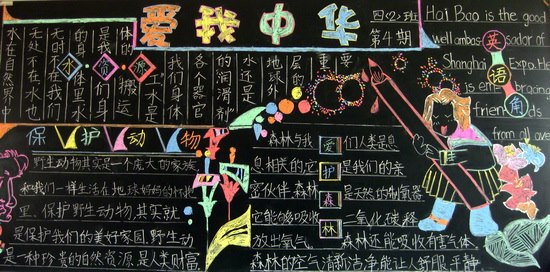 爱我中华
四(2)班
第4期
Hai Bao is the good
well ambas sador of
Shanghai Expo. He
is embringing
friends
from all over
英语角
水资源
水在自然界中
无处不在水也
无时不在
的身体里水
是我
体的搬运
工水是
我们身体
各个器官
的润滑剂
水还是
地球外
层的
重要
保护动物
野生动物其实是一个庞大的家族
和我们一样生活在地球好的村
里、保护野生动物,其实就
是保护我们的美好家园,野生动
是一种珍贵的自然资源,是人类财富.
爱护森林
森林与我们人类息
息相关的,它是我们的亲
密伙伴.森林是天然的制氧器
它能够吸收二氧化碳释
放出氧气.森林还能吸收有害气体.
森林的空气清新洁净能让人舒服平静